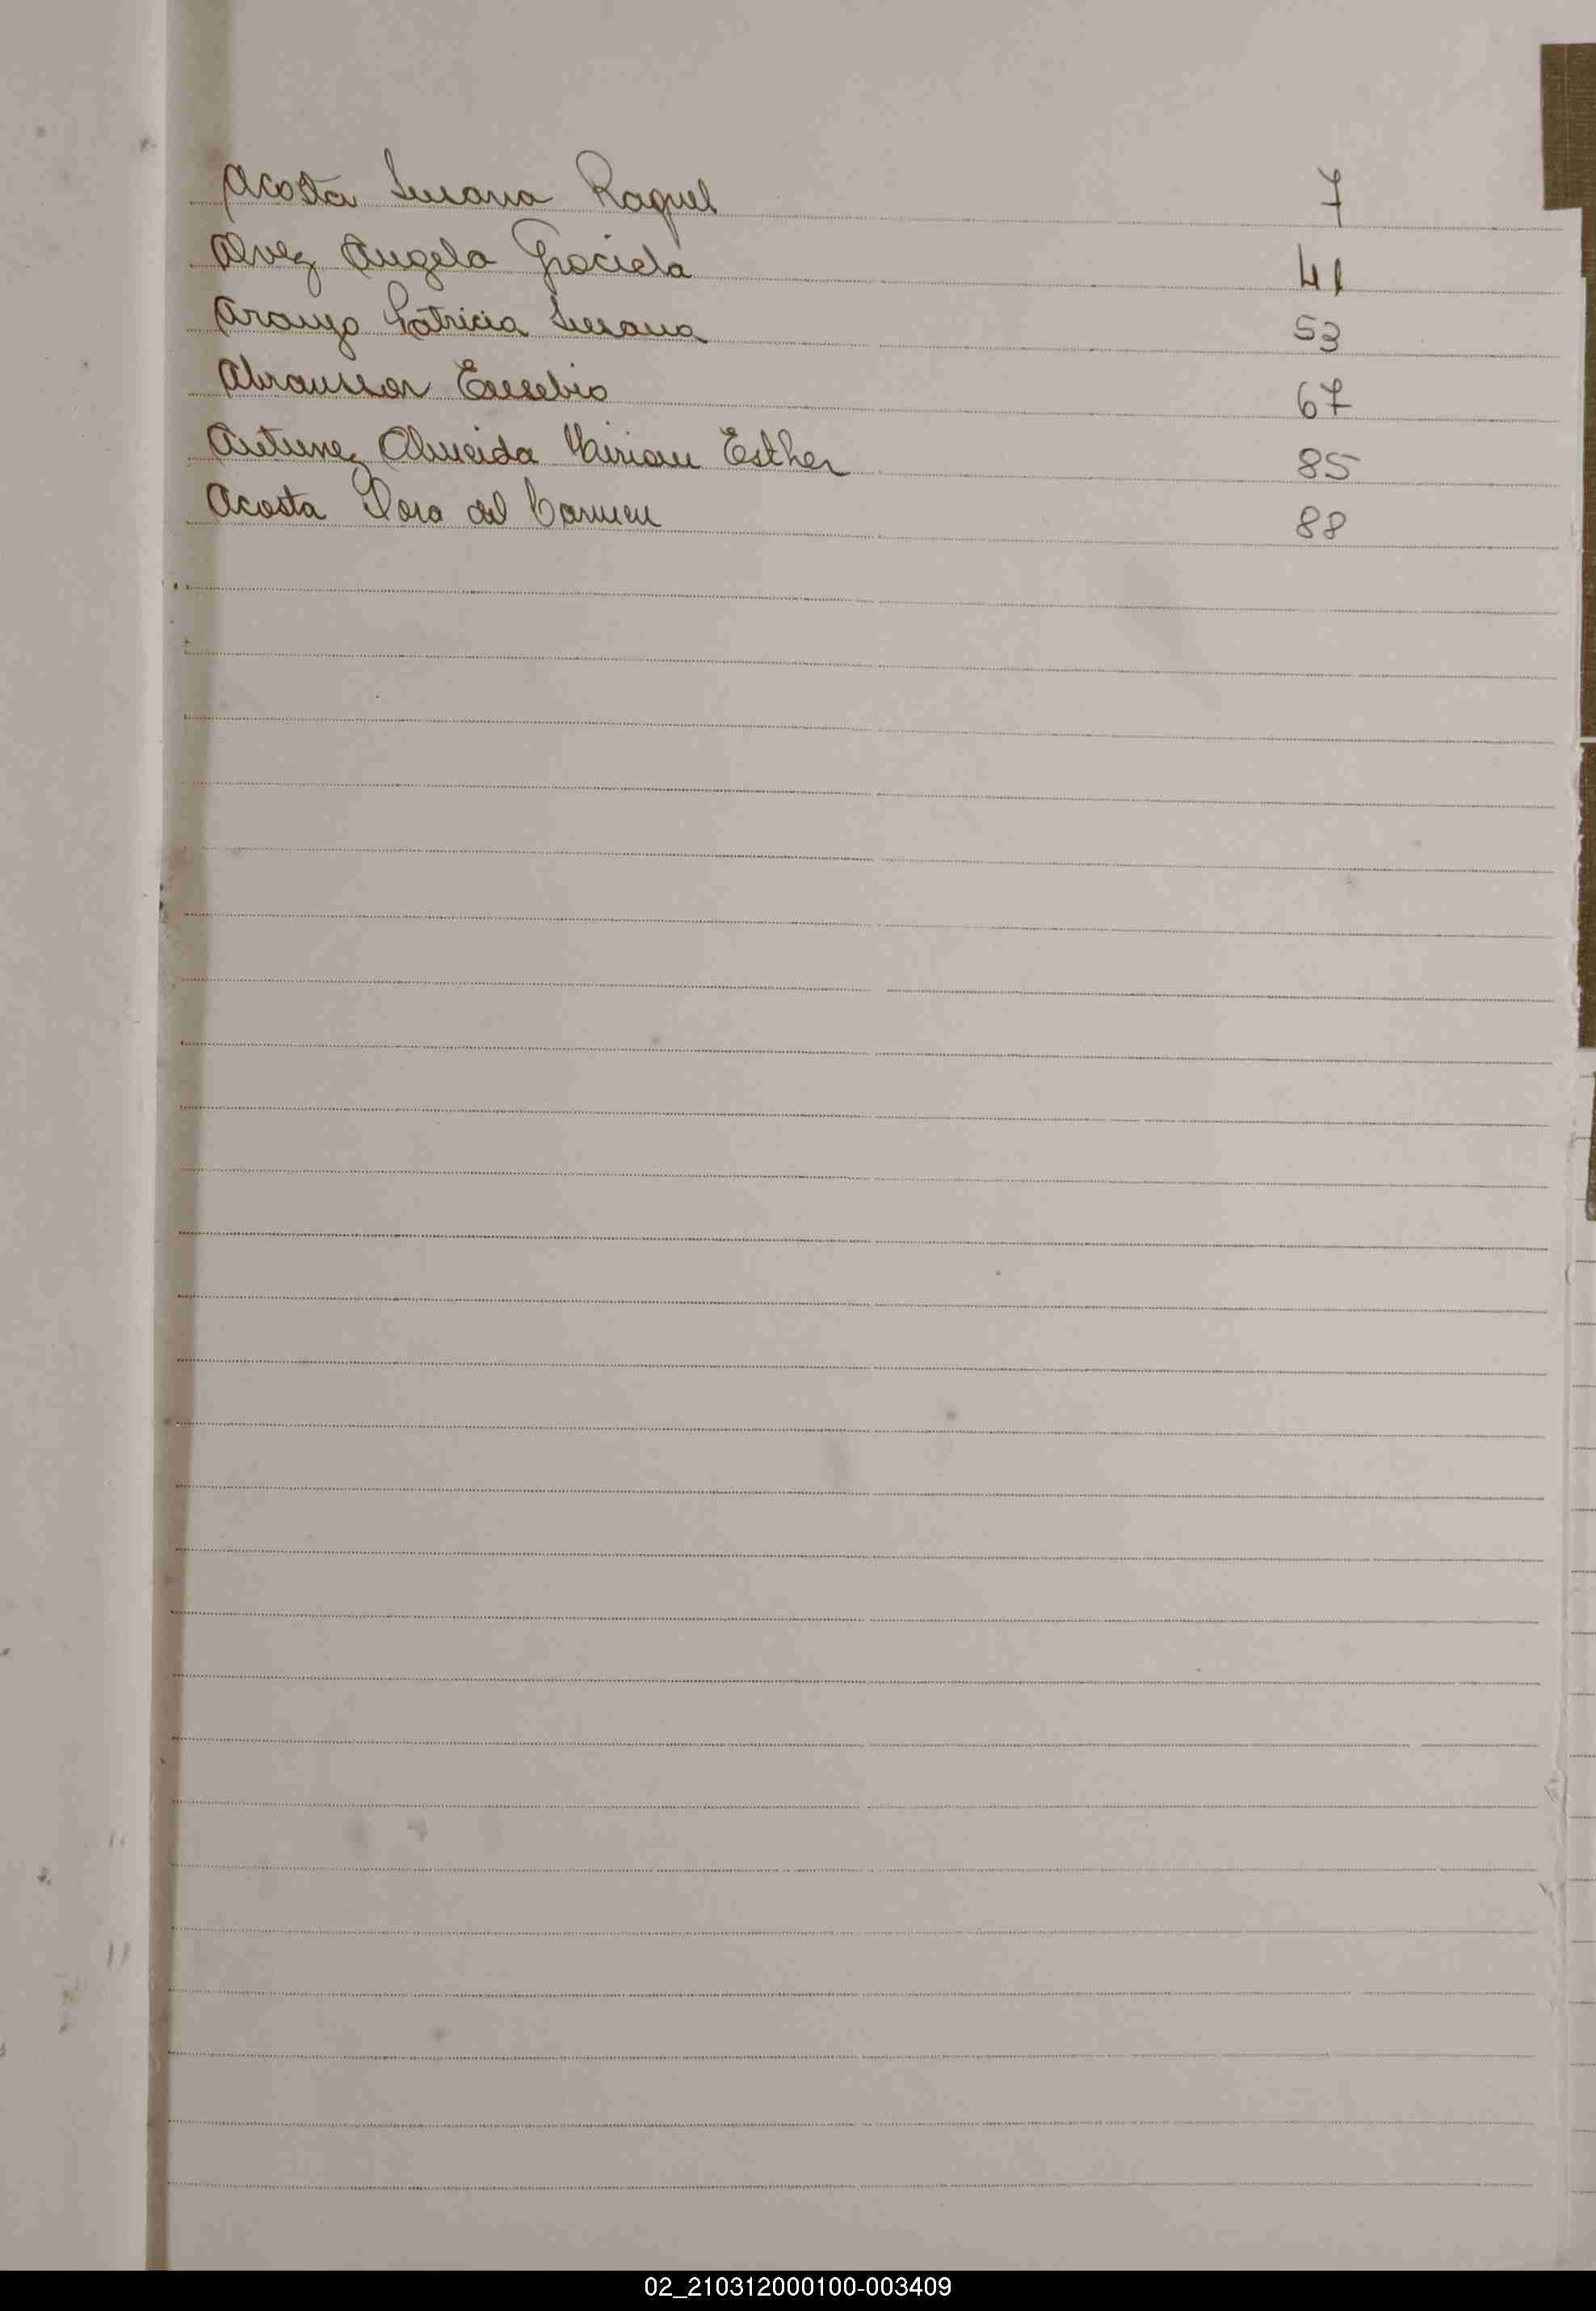 Acosta Susana Raquel 7
Alvez Angela Graciela 41
Araujo Patricia Susana 53
Eusebio 67
Antunez Almeida Miriam Esther 85
Acosta Dora del Carmen 88
02_210312000100-003409